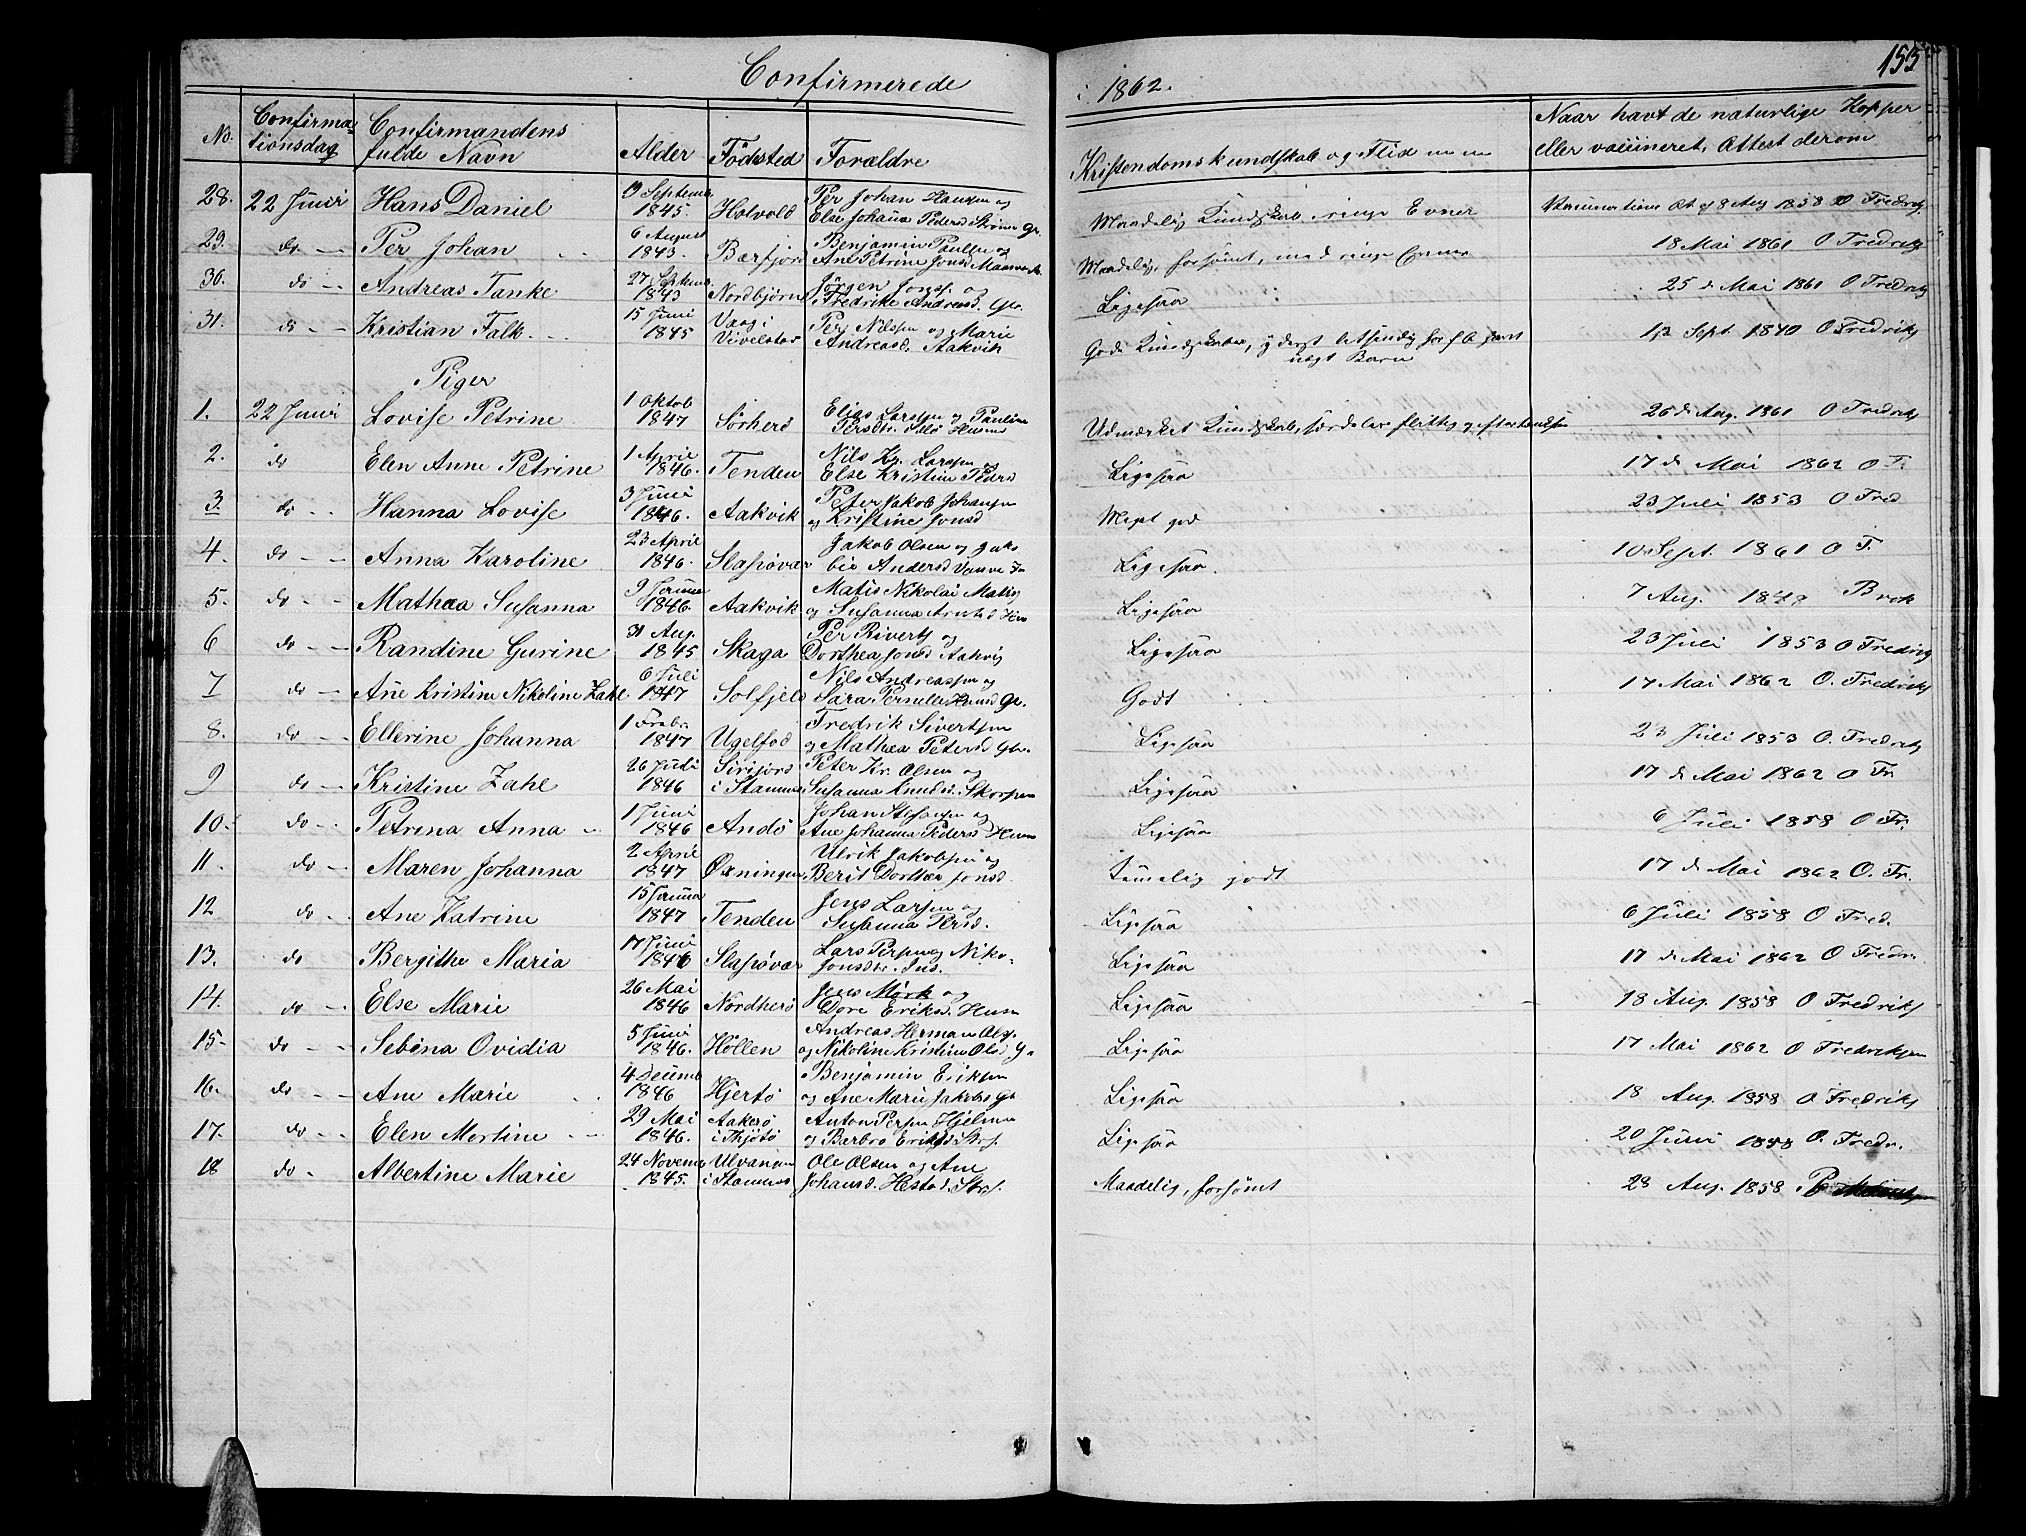 Confirmerede
i 1862.
155
No. Confirmationsdag Confirmandens fulde Navn Alder Fødsted Forældre Kristendomskundskab og Flid m m Naar havt de naturlige Kopper eller vaccineret, Attest derom
28. 22 Juni Hans Daniel 9 Septemb 1845. Holvold Per Johan Hansen og Else Johaña Peders Maadelig Kundskab ringe Evner Vaccination At. af 8 Aug 1858 O Fredrik
29. do Per Johan 6 August 1843. Bærfjord Benjamin Paulsen og Ane Petrine Jonsd Maadelig, forsömt, med ringe Evner 18 Mai 1861 O Fredrik
30. do Andreas Tanke 27 Septemb 1843 Nordbjørn Jörgen Jonss. og Fredrike Andreasd. Ligesaa 25 d Mai 1861 O Fredrik
31. do Kristian Falk 15 Juni 1845 Vaag i Vivelstad Per Nilssen og Marie Andreasd. Aakvik Gode Kundskaber, yderst letsindig Barn 12 Sept. 1840 O Fredriks
Piger
1. 22 Juni Lovise Petrine 1 Oktob 1847 Sørherö Elias Larssen og Pauline Persdtr. Udmærket Kundskab, særdeles flittig 26 de Aug. 1861 O Fredriks
2. do Elen Anne Petrine 1 April 1846. Tenden Nils Kr. Larssen og Else Kristine Peders Ligesaa 17 d Mai 1862 O F.
3. do Hanna Lovise 3 Juni 1846. Aakvik Peter Jakob Johansen og Kristine Jonsd Meget god 23 Juli 1853 O Fred
4. do Anna Karoline 23 April 1846. Slapøvær Jakob Olsen og Jakobie Andersd Ligesaa. 10 Sept. 1861 O F.
5. do Mathæa Susanna 9 Januar 1846. Aakvik Matis Nikolai Matis og Susanna Ligesaa 7 Aug. 1849 Brok
6 do Randine Gurine 31 Aug. 1845 Skaga Per Sivertz og Dorthea Jonsd Aakvig Ligesaa 23 Juli 1853 O Fredrik
7 do Añe Kristine Nikoline Zahl 6 Juli 1847 Solfjeld Nils Andreassen og Sara Pernille Godt 17 Mai 1862 O. Fredriks
8. do Ellerine Johanna 1 Febr. 1847 Ugelfod Fredrik Sivertsen og Mathæa Petersd Ligesaa 23 Juli 1853 O. Fredrik
9 do Kristine Zahl 26 Juli 1846 i Stamnes Peter Kr. Olsen og Susanna Knudsd. Skorpen Ligesaa 17 d Mai 1862 O Fr
10. do Petrina Anna 1 Juni 1846 Andö Johan og Ane Johanna Peders Ligesaa 6 Juli 1858 O Fr.
11. do Maren Johanna 2 April 1847 Øxningen Ulrik Jakobsen og Berit Dorthea Jonsd. Temelig godt 17 d Mai 1862 O. Fr.
12 do Ane Katrine 15 Janua 1847 Tenden Jens Larsen og Susanna Persd. Ligesaa 6 Juli 1858 O Fred.
13. do Bergithe Maria 17 Juni 1846 Slapøvær Lars Perssen og Niko- Jonsdtr. Ligesaa 17 d Mai 1862 O Fredr.
14. do Else Marie 26 Mai 1846 Nordherö Jens Mörk og Dore Eriksd. Ligesaa 18 Aug. 1858 O Fredriks
15. do Sebina Ovidia 5 Juni 1846. Höllen Andreas Herman Ols. og Nikoline Kristine Olsd Ligesaa 17 Mai 1862 O Fredriksen
16. do Ane Marie 4 Decemb 1846 Hjertö Benjamin Eriksen og Ane Marie Jakobs Ligesaa 18 Aug. 1858 O Fredriks
17. do Elen Mortine 29 Mai 1846. Aakerö i Thjötö Anton Persen Hjelm og Barbro Eriksd Ligesaa 20 Juni 1858 O. Fredr.
18 do Albertine Marie 24 Novemb 1845. Ulvangen i Stamnes Ole Olsen og Ane Johansd. Hestad. Maadelig, forsömt 28 Aug. 1858